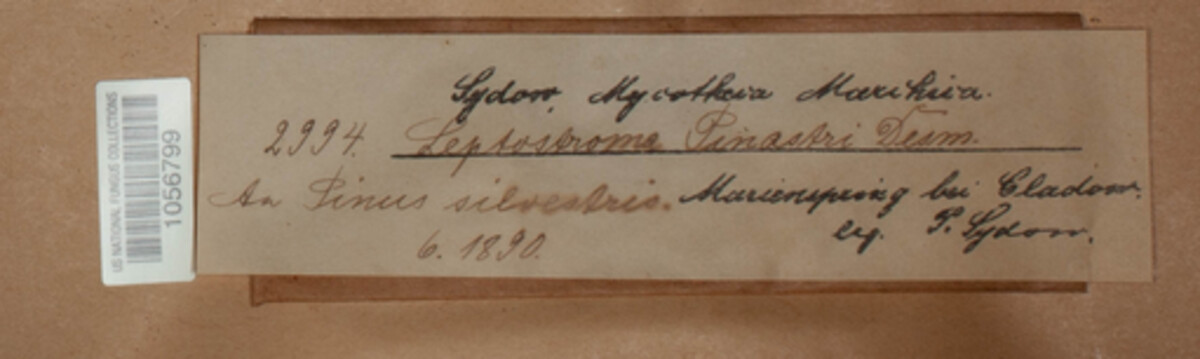 Sydow, Mycotheca Marchica.
2994. Leptostroma Pinastri Desm.
An Pinus silvestris. Marienspring bei Cladow.
6. 1890. leg. P. Sydow.
US NATIONAL FUNGUS COLLECTIONS
1056799